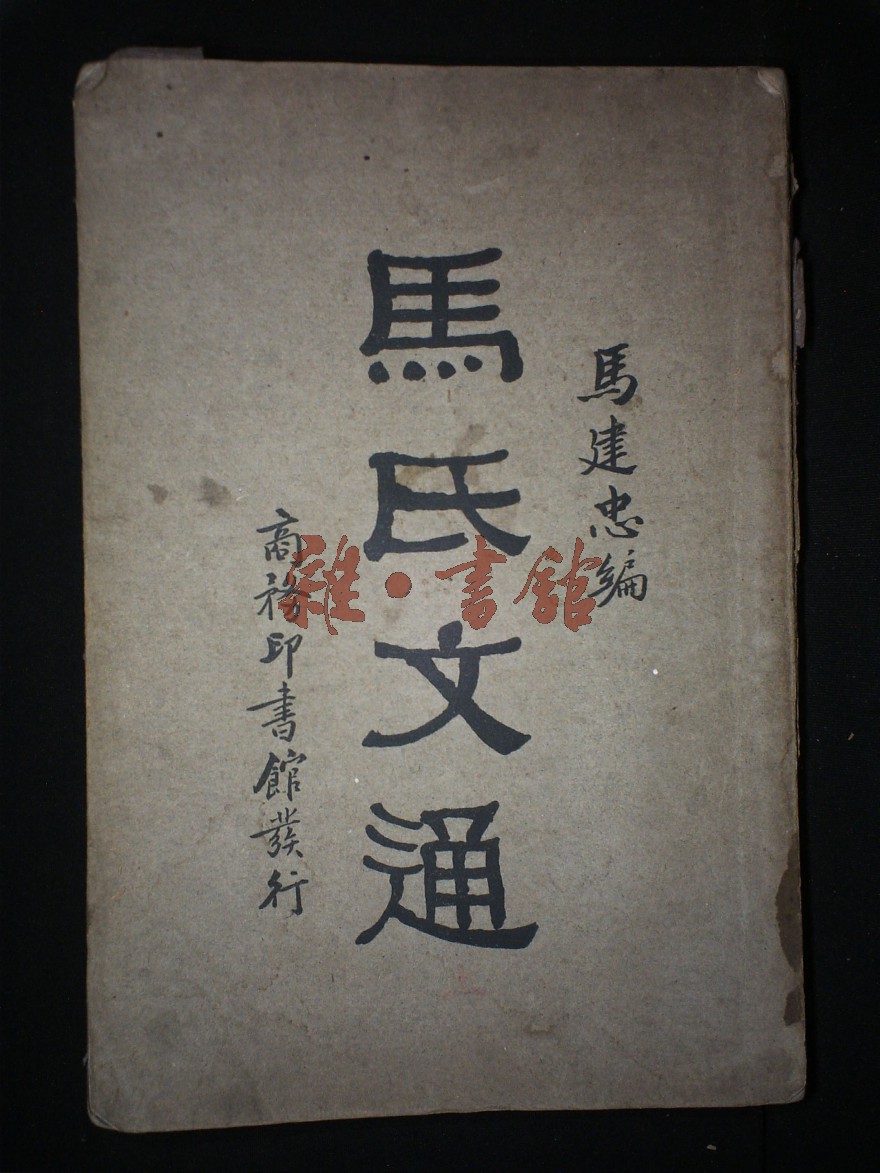 馬建忠編
馬氏文通
商務印書館發行
雜·書館